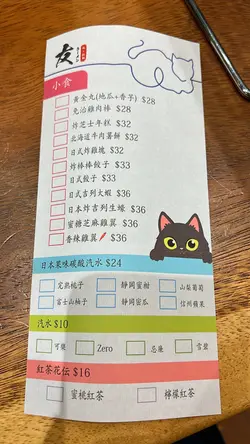 友
小食
黃金丸(地瓜+香芋) $28
魚治雞肉棒 $28
炸芝士年糕 $32
北海道牛肉薯餅 $32
日式炸雞塊 $32
炸棒棒餃子 $33
日式餃子 $33
日式吉列大蝦 $36
日本炸吉列生蠔 $36
蜜糖芝麻雞翼 $36
香辣雞翼 $36
日本果味碳酸汽水 $24
完熟桃子 靜岡蜜柑 山梨葡萄
富士山柚子 靜岡蜜瓜 信州蘋果
汽水 $10
可樂 Zero 忌廉 雪碧
紅茶花伝 $16
蜜桃紅茶 檸檬紅茶